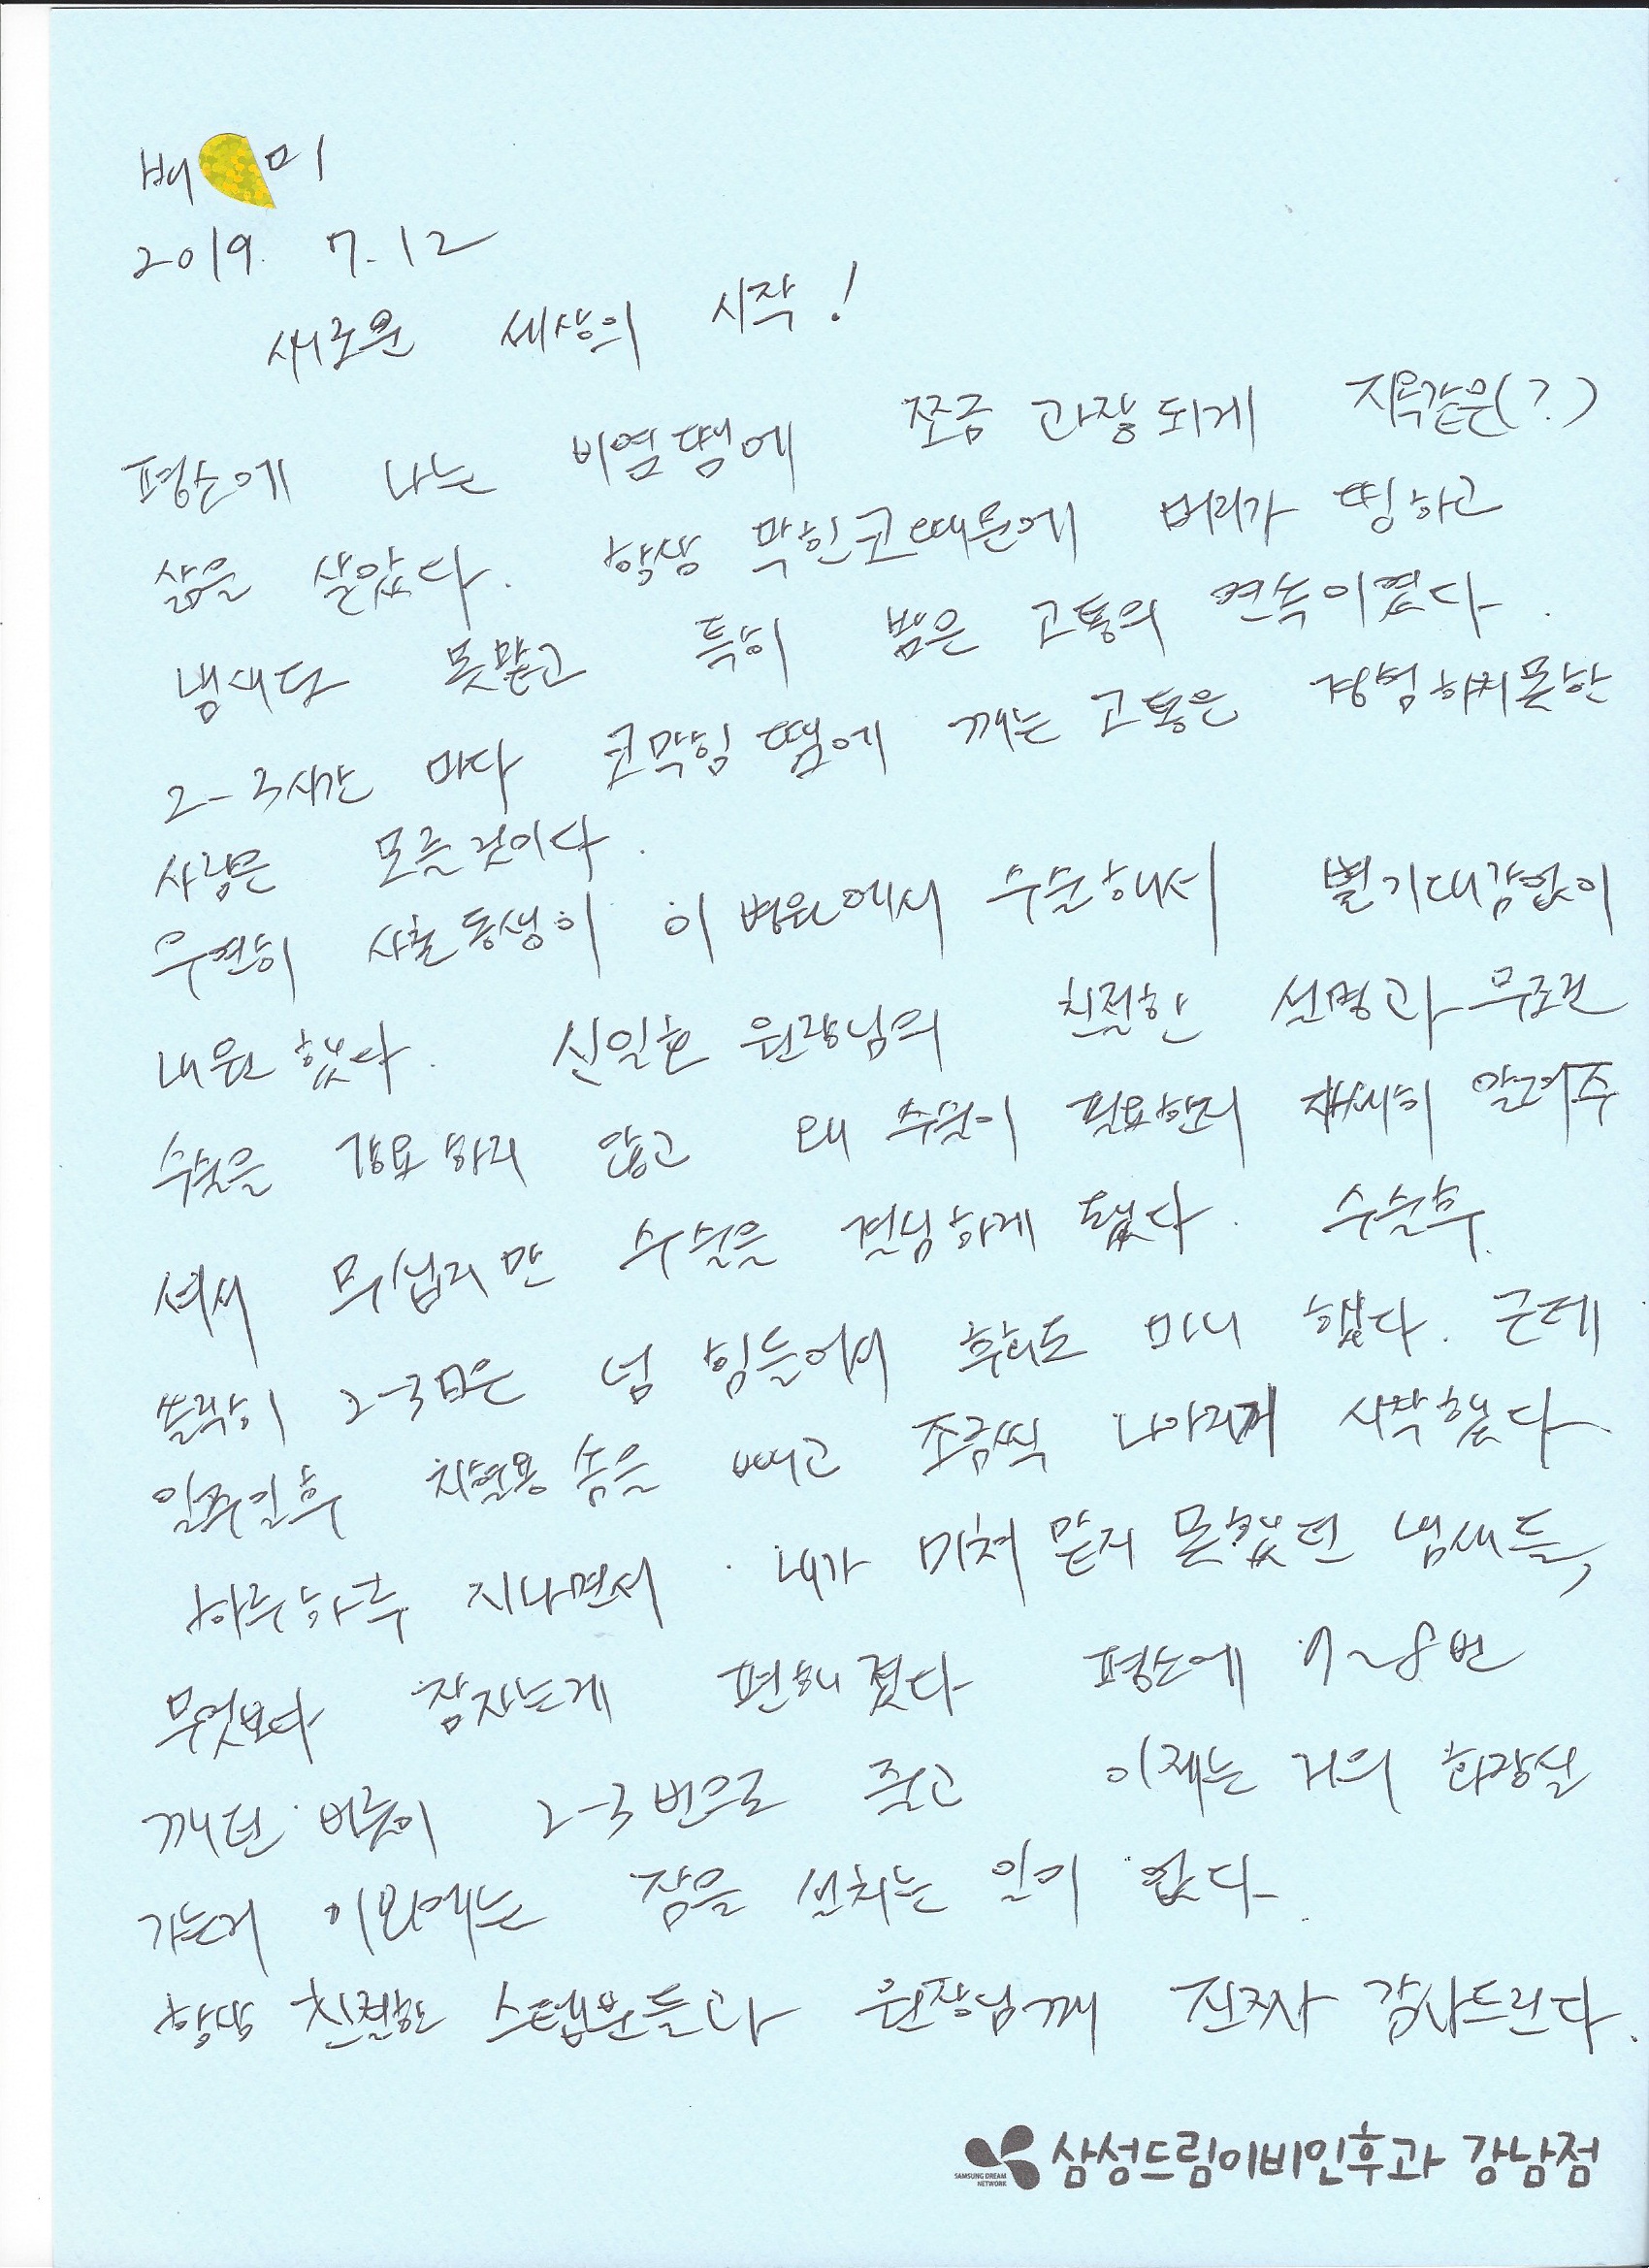 배 미
2019. 7.12
새로운 세상의 시작!
평소에 나는 비염땜에 쪼금 과장되게 지옥같은(?)
삶을 살았다. 항상 막힌코때문에 머리가 띵하고
냄새도 못맡고 특히 밤은 고통의 연속이였다.
2-3시간 마다 코막힘 땜에 깨는 고통은 경험하지못한
사람은 모를것이다.
우연히 사촌동생이 이병원에서 수술해서 별기대감없이
내원했다. 신일호 원장님의 친절한 설명과 무조건
수술을 강요하지 않고 왜 수술이 필요한지 자세히 알려주
셔서 무섭지만 수술을 결심하게 됐다. 수술후.
솔직히 2-3일은 넘 힘들어서 후회도 마니 했다. 근데
일주일후 지혈용솜을 빼고 조금씩 나아지기 시작했다
하루하루 지나면서 내가 미쳐 맡지 못했던 냄새들,
무엇보다 잠자는게 편해졌다 평소에 7~8번
깨던 버릇이 2-3번으로 줄고 이제는 거의 화장실
가는거 이외에는 잠을 설치는 일이 없다.
항상 친절한 스텝분들과 원장님께 진짜 감사드린다.
SAMSUNG DREAM NETWORK 삼성드림이비인후과 강남점